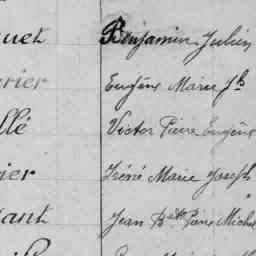 quet Benjamin Julien
rier Eugène Marie Jh
llé Victor Pierre Eugène
ier Iréné Marie Joseph
ant Jean Bte Pierre Michel